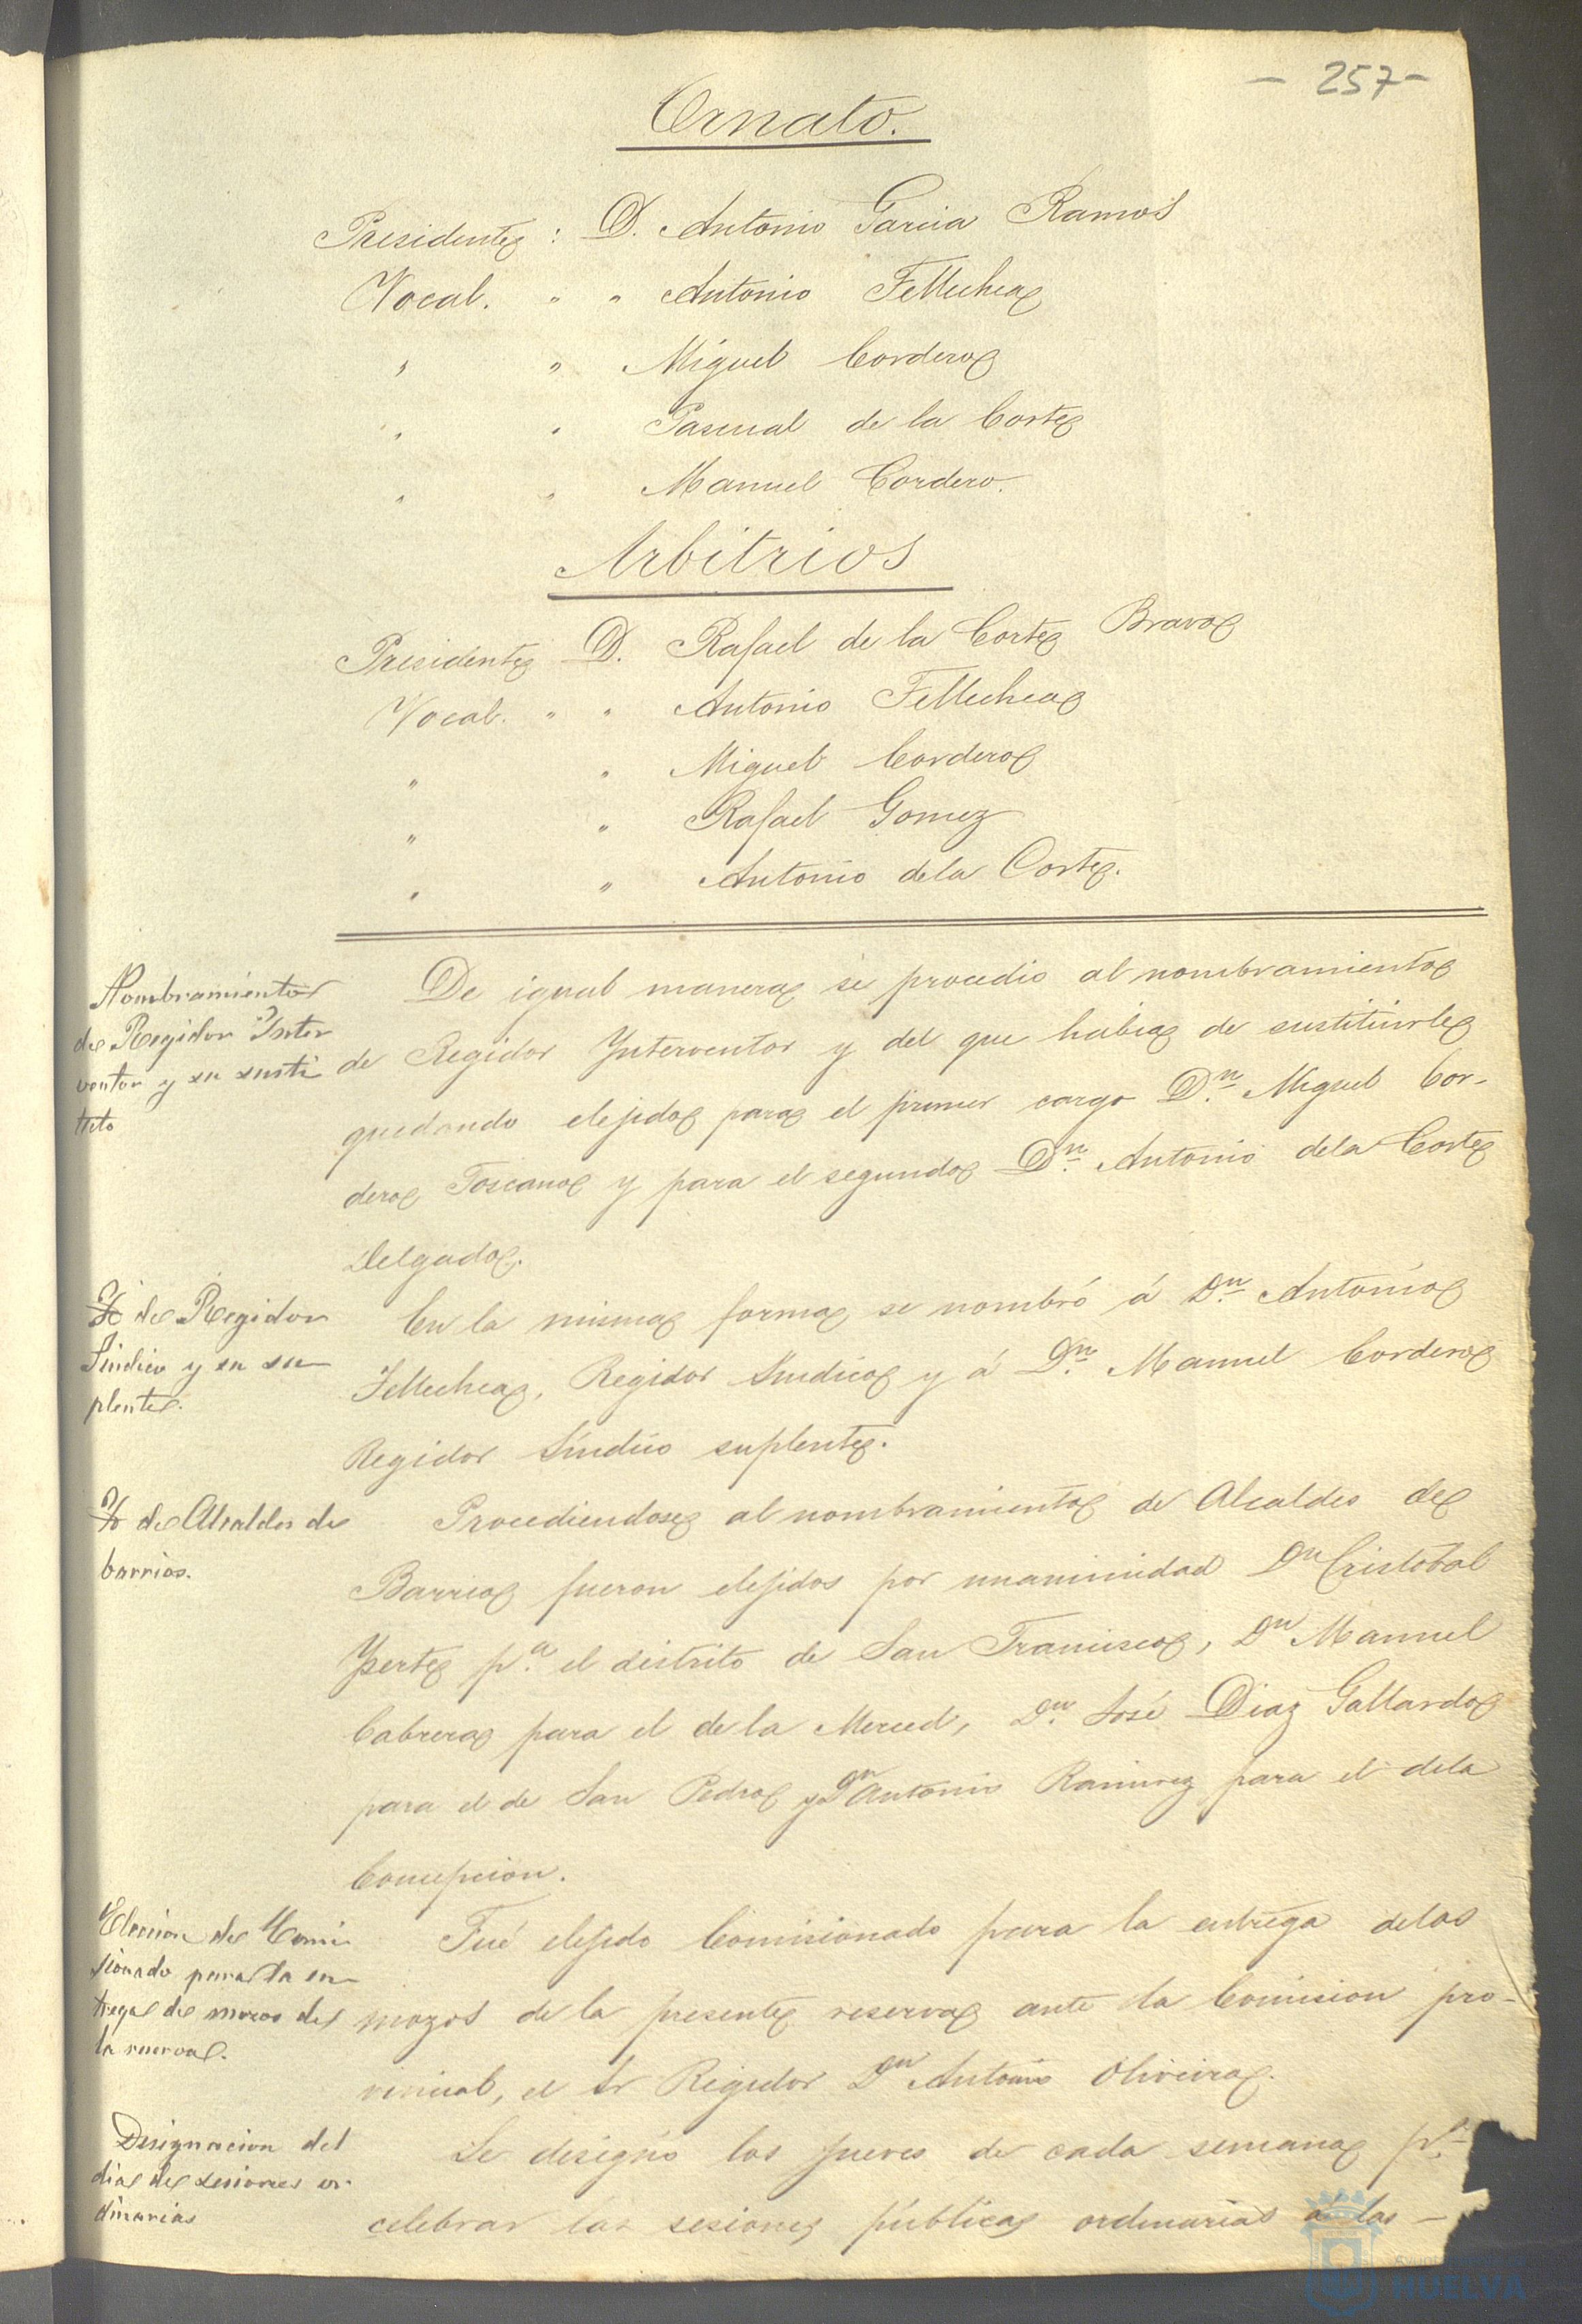 - 257 -
Ornato.
Presidente : D. Antonio Garcia Ramos
Vocal. " " Antonio Fellechea
" " Miguel Cordero
" " Pascual de la Corte
" " Manuel Cordero.
Arbitrios
Presidente D. Rafael de la Corte Bravo
Vocal. " " Antonio Fellechea
" " Miguel Cordero
" " Rafael Gomez
" " Antonio dela Corte.
Nombramiento
de Regidor Inter
ventor y su susti
tuto
De igual manera se procedio al nombramiento
de Regidor Ynterventor y del que habia de sustituirle
quedando elejido para el primer cargo Dn. Miguel Cor-
dero Toscano y para el segundo Dn. Antonio dela Corte
Delgado.
Yd de Regidor
Sindico y su su
plente.
En la misma forma se nombró á Dn. Antonio
Fellechea, Regidor Sindico y á Dn. Manuel Cordero
Regidor Síndico suplente.
Yd de Alcaldes de
barrios.
Procediendose al nombramiento de Alcaldes de
Barrio fueron elejidos por unanimidad Dn Cristobal
Yserte pa. el distrito de San Francisco, Dn Manuel
Cabrera para el de la Merced, Dn. José Diaz Gallardo
para el de San Pedro y Dn Antonio Ramirez para el dela
Concepcion.
Eleccion de Comi
sionado para la en-
trega de mozos de
la reserva.
Fué elejido Comisionado para la entrega delos
mozos de la presente reserva ante la Comision pro-
vincial, el Sr Regidor Dn Antonio Oliveira.
Designacion del
dia de sesiones or-
dinarias
Se designó los jueves de cada semana pa.
celebrar las sesiones públicas ordinarias á las -
HUELVA